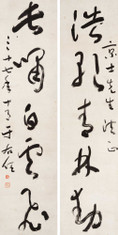 京士先生法正
浩歌青林動
長嘯白雲飛
三十七年十月于右任